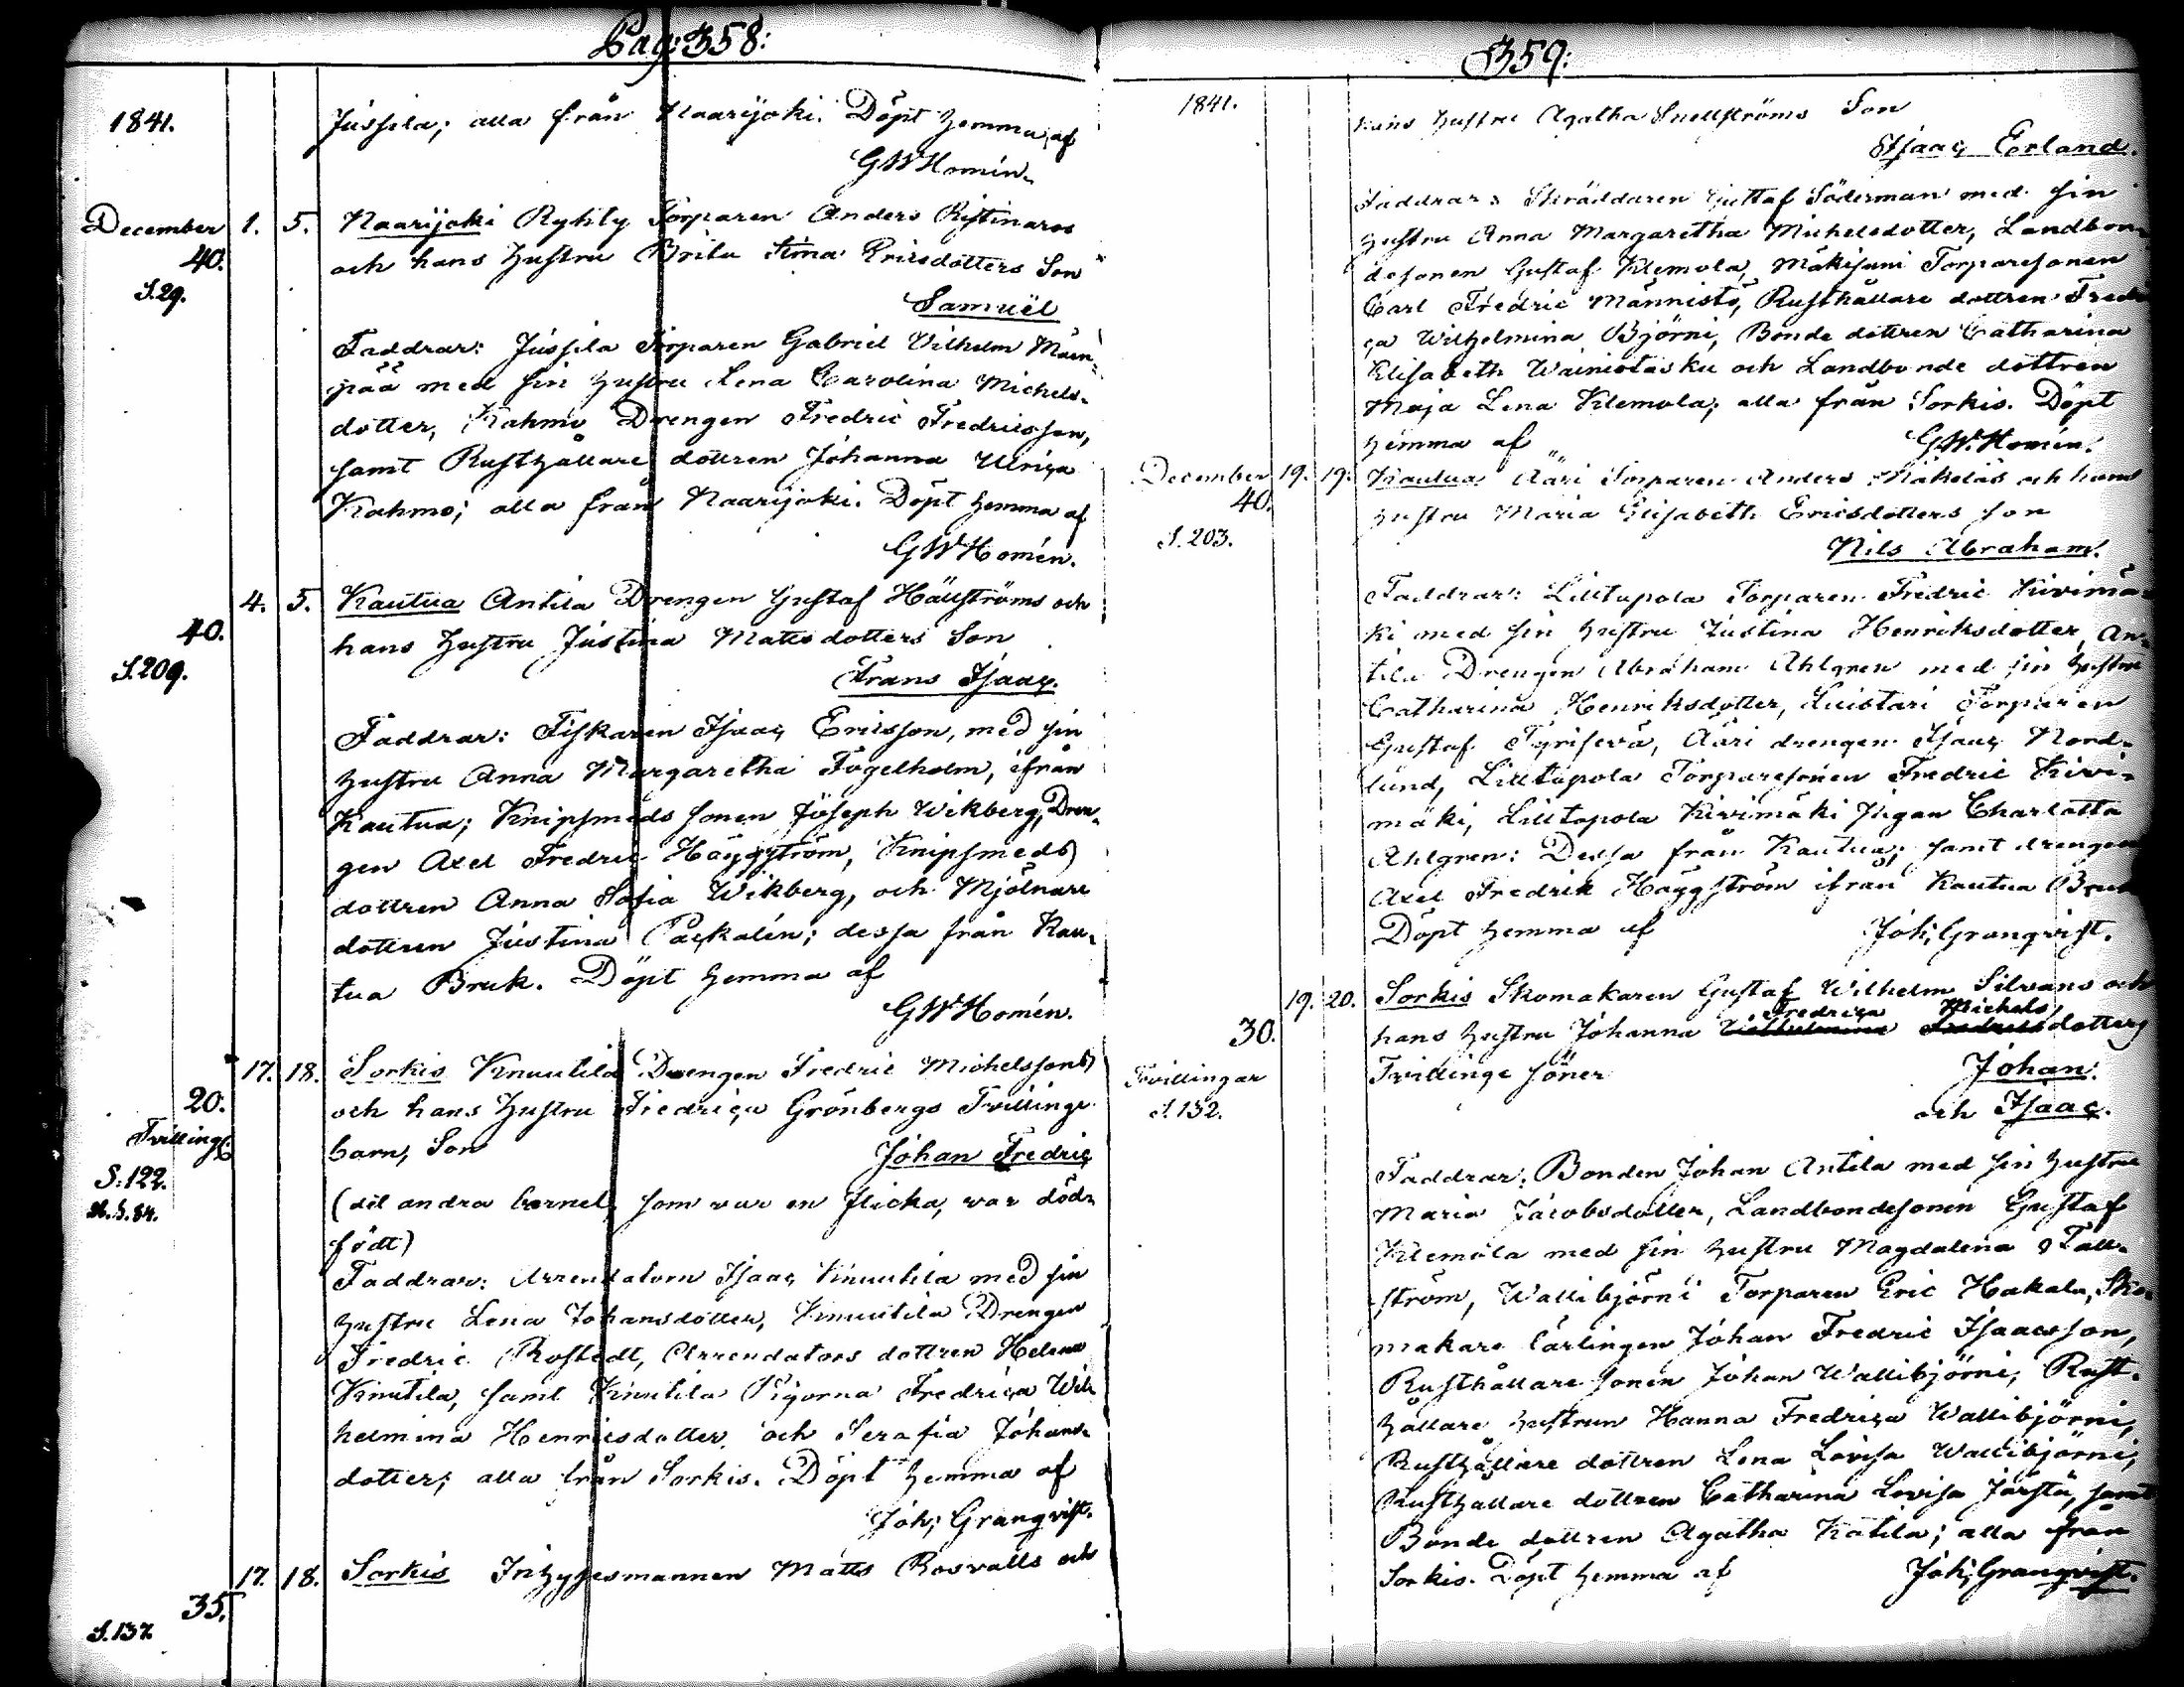 Pag: 358:
1841.
Jussila; alla från Naarijoki. Döpt hemma af
GWHomén.
December 1. 5. Naarijoki Ryhty Torparen Anders Ristinaros
40. och hans hustru Brita Stina Ericsdotters Son
S.29.
Samuël
Faddrar: Jussila Torparen Gabriel Vilhelm Mäen-
pää med sin hustru Lena Carolina Michels-
dotter, Kahmo Drengen Fredric Fredricsson,
samt Rusthållare dottren Johanna Ulrica
Kahmo; alla från Naarijoki. Döpt hemma af
GWHomén.
4. 5. Kautua Antila Drengen Gustaf Hällströms och
40. hans hustru Justina Matts dotters Son
S.209.
Frans Isaac.
Faddrar: Fiskaren Isaac Ericsson, med sin
hustru Anna Margaretha Fogelholm, ifrån
Kautua; Knipsmeds sonen Joseph Wikberg, Dren-
gen Axel Fredric Häggström, Knipsmeds
dottren Anna Sofia Wikberg, och Mjölnare
dottren Justina Packalén; dessa från Kau-
tua Bruk. Döpt hemma af
GWHomén.
17. 18. Sorkis Knuutila Drengen Fredric Michelssons
20. och hans hustru Fredrica Grönbergs Tvillinge
Tvilling
barn, Son Johan Fredric
S.122.
(det andra barnet, som var en flicka, var död-
födt)
Faddrar: Arrendatorn Isaac Knuutila med sin
hustru Lena Johansdotter, Knuutila Drengen
Fredric Rostedt, Arrendators dottren Helena
Knutila, samt Knutila Pigorna Fredrica Wil-
helmina Henricsdotter, och Serafia Johans-
dotter; alla från Sorkis. Döpt hemma af
Joh; Granqvist.
17. 18. Sorkis Inhysesmannen Matts Rosvalls och
35.
S.137
359:
1841.
hans hustru Agatha Snellströms Son
Isaac Erland.
Faddrar: Skräddaren Gustaf Söderman med sin
hustru Anna Margaretha Michelsdotter, Landbon-
desonen Gustaf Klemola, Mäkisuni Torparesonen
Carl Fredric Männistö, Rusthållare dottren Fredri
ca Wilhelmina Björni, Bonde dottren Catharina
Elisabeth Wainiotasku och Landbonde dottren
Maja Lena Klemola; alla från Sorkis. Döpt
hemma af GW.Homén.
December 19. 19. Kautua Ääri Torparen Anders Mäkeläs och hans
40. hustru Maria Elisabeth Ericsdotters son
S.203.
Nils Abraham.
Faddrar: Lilltupola Torparen Fredric Kivimä-
ki med sin hustru Justina Henriksdotter, An-
tila Drengen Abraham Ahlgren med sin hustru
Catharina Henriksdotter, Luistari Torparen
Gustaf Tyriseva, Ääri drengen Isaac Nord-
lund, Lilltupola Torparesonen Fredric Kivi-
mäki, Lilltupola Kivimäki Pigan Charlotta
Ahlgren: Dessa från Kautua; samt drengen
Axel Fredrik Häggström ifrån Kautua Bruk
Döpt hemma af Joh; Granqvist.
19. 20. Sorkis Skomakaren Gustaf Wilhelm Silvans och
Fredrica Michels
30. hans hustru Johanna Wilhelmina Fredricsdotters
Tvillingar Tvillinge söner Johan.
S.152.
och Isaac.
Faddrar: Bonden Johan Antila med sin hustru
Maria Jacobsdotter, Landbondesonen Gustaf
Klemola med sin hustru Magdalena Täll-
ström, Wallibjörni Torparen Eric Hakala, Sko-
makare lärlingen Johan Fredric Isaacsson,
Rusthållare sonen Johan Wallibjörni, Rust-
hållare hustrun Hanna Fredrica Wallibjörni,
Rusthållare dottren Lena Lovisa Wallibjörni,
Rusthållare dottren Catharina Lovisa Järstä, samt
Bonde dottren Agatha Katila; alla från
Sorkis. Döpt hemma af Joh; Granqvist.